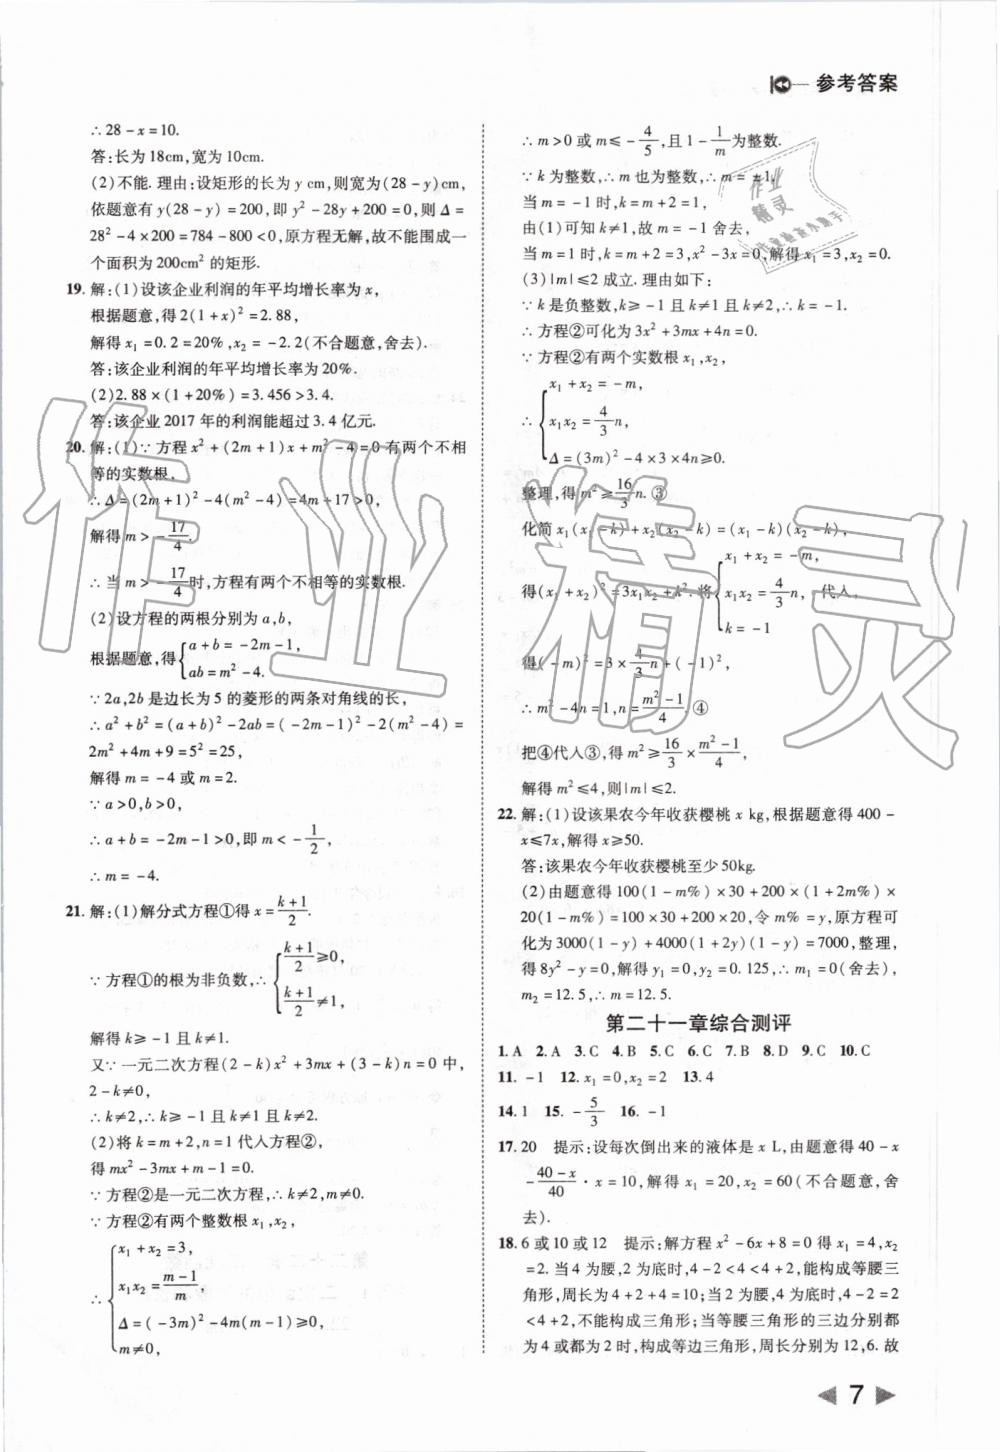 参考答案
∴28-x=10.
答:长为18cm,宽为10cm.
(2)不能.理由:设矩形的长为y cm,则宽为(28-y)cm,
依题意有y(28-y)=200,即y²-28y+200=0,则Δ=
28²-4×200=784-800<0,原方程无解,故不能围成一
个面积为200cm²的矩形.
19.解:(1)设该企业利润的年平均增长率为x,
根据题意,得2(1+x)²=2.88,
解得x₁=0.2=20%,x₂=-2.2(不合题意,舍去).
答:该企业利润的年平均增长率为20%.
(2)2.88×(1+20%)=3.456>3.4.
答:该企业2017年的利润能超过3.4亿元.
20.解:(1)∵方程x²+(2m+1)x+m²-4=0有两个不相
等的实数根.
∴Δ=(2m+1)²-4(m²-4)=4m+17>0,
解得m>-17/4.
∴当m>-17/4时,方程有两个不相等的实数根.
(2)设方程的两根分别为a,b,
根据题意,得{a+b=-2m-1,
ab=m²-4.
∵2a,2b是边长为5的菱形的两条对角线的长,
∴a²+b²=(a+b)²-2ab=(-2m-1)²-2(m²-4)=
2m²+4m+9=5²=25,
解得m=-4或m=2.
∵a>0,b>0,
∴a+b=-2m-1>0,即m<-1/2,
∴m=-4.
21.解:(1)解分式方程①得x=(k+1)/2.
∵方程①的根为非负数,∴{(k+1)/2≥0,
(k+1)/2≠1,
解得k≥-1且k≠1.
又∵一元二次方程(2-k)x²+3mx+(3-k)n=0中,
2-k≠0,
∴k≠2,∴k≥-1且k≠1且k≠2.
(2)将k=m+2,n=1代入方程②,
得mx²-3mx+m-1=0.
∵方程②是一元二次方程,∴k≠2,m≠0.
∵方程②有两个整数根x₁,x₂,
∴{x₁+x₂=3,
x₁x₂=(m-1)/m,
Δ=(-3m)²-4m(m-1)≥0,
m≠0,
∴m>0或m≤-4/5,且1-1/m为整数.
∵k为整数,∴m也为整数,∴m=±1,
当m=-1时,k=m+2=1,
由(1)可知k≠1,故m=-1舍去,
当m=1时,k=m+2=3,x²-3x=0,解得x₁=3,x₂=0.
(3)|m|≤2成立.理由如下:
∵k是负整数,k≥-1且k≠1且k≠2,∴k=-1.
∴方程②可化为3x²+3mx+4n=0.
∵方程②有两个实数根x₁,x₂,
∴{x₁+x₂=-m,
x₁x₂=4/3n,
Δ=(3m)²-4×3×4n≥0.
整理,得m²≥16/3n.③
化简x₁(x₁-k)+x₂(x₂-k)=(x₁-k)(x₂-k),
得(x₁+x₂)²=3x₁x₂+k².将{x₁+x₂=-m,
x₁x₂=4/3n,代入,
k=-1
得(-m)²=3×4/3n+(-1)²,
∴m²-4n=1,n=(m²-1)/4.④
把④代入③,得m²≥16/3×(m²-1)/4,
解得m²≤4,则|m|≤2.
22.解:(1)设该果农今年收获樱桃x kg,根据题意得400-
x≤7x,解得x≥50.
答:该果农今年收获樱桃至少50kg.
(2)由题意得100(1-m%)×30+200×(1+2m%)×
20(1-m%)=100×30+200×20,令m%=y,原方程可
化为3000(1-y)+4000(1+2y)(1-y)=7000,整理,
得8y²-y=0,解得y₁=0,y₂=0.125,∴m₁=0(舍去),
m₂=12.5,∴m=12.5.
第二十一章综合测评
1.A 2.A 3.C 4.B 5.C 6.C 7.B 8.D 9.C 10.C
11.-1 12.x₁=0,x₂=2 13.4
14.1 15.-5/3 16.-1
17.20 提示:设每次倒出来的液体是x L,由题意得40-x
-(40-x)/40·x=10,解得x₁=20,x₂=60(不合题意,舍
去).
18.6或10或12 提示:解方程x²-6x+8=0得x₁=4,x₂
=2.当4为腰,2为底时,4-2<4<4+2,能构成等腰三
角形,周长为4+2+4=10;当2为腰,4为底时,4-2=2
<4+2,不能构成三角形;当等腰三角形的三边分别都
为4或都为2时,构成等边三角形,周长分别为12,6.故
7
作业精灵
作业
精灵